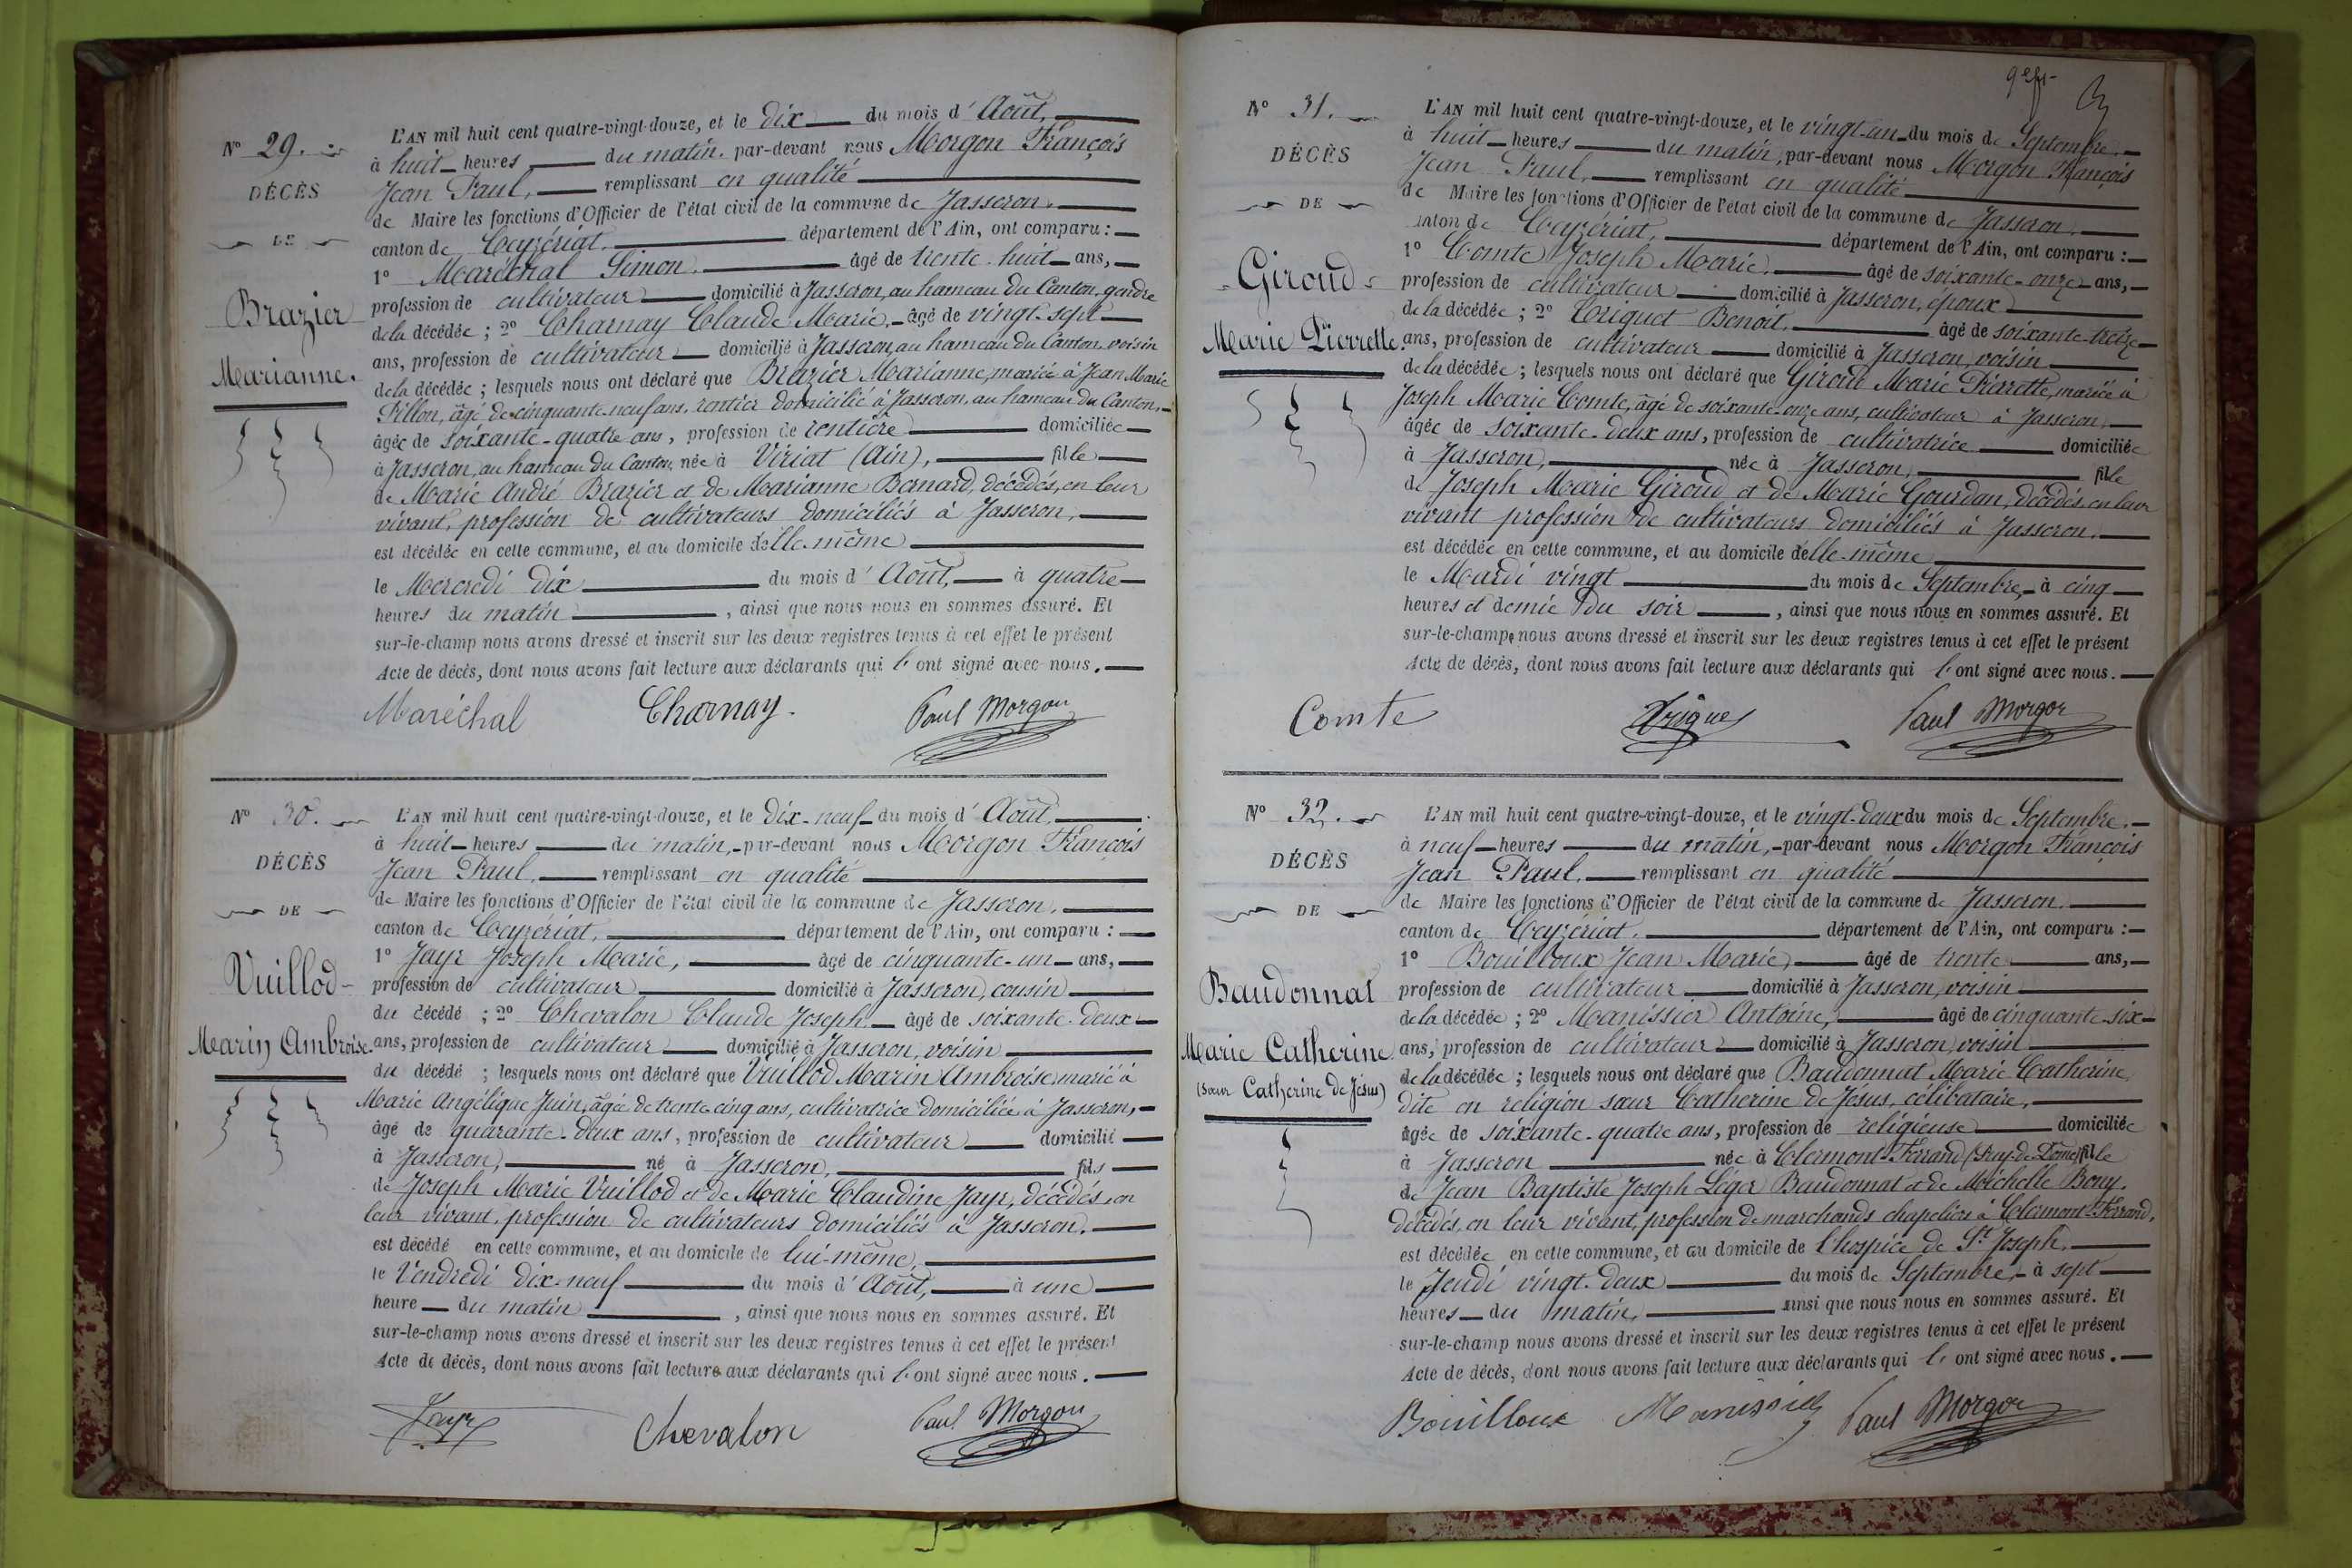 N° 29.
DÉCÈS
DE
Brazier
Marianne.
L'AN mil huit cent quatre-vingt-douze, et le dix du mois d'Août,
à huit heures du matin, par-devant nous Morgon François
Jean Paul, remplissant en qualité
de Maire les fonctions d'Officier de l'état civil de la commune de Jasseron,
canton de Ceyzériat, département de l'Ain, ont comparu :
1° Maréchal Simon, âgé de trente-huit ans,
profession de cultivateur domicilié à Jasseron, au hameau du Canton, gendre
de la décédée ; 2° Charnay Claude Marie, âgé de vingt-sept
ans, profession de cultivateur domicilié à Jasseron, au hameau du Canton voisin
de la décédée ; lesquels nous ont déclaré que Brazier Marianne, mariée à Jean Marie
Pillon, âgé de cinquante-neuf ans, rentier domicilié à Jasseron, au hameau du Canton,
âgée de soixante-quatre ans, profession de rentière domiciliée
à Jasseron, au hameau du Canton, née à Viriat (Ain), fille
de Marie André Brazier et de Marianne Bernard, décédés, en leur
vivant, profession de cultivateurs domiciliés à Jasseron,
est décédée en cette commune, et au domicile d'elle-même
le Mercredi dix du mois d'Août, à quatre
heures du matin, ainsi que nous nous en sommes assuré. Et
sur-le-champ nous avons dressé et inscrit sur les deux registres tenus à cet effet le présent
Acte de décès, dont nous avons fait lecture aux déclarants qui l'ont signé avec nous.
Maréchal Charnay. Paul Morgon
N° 30.
DÉCÈS
DE
Vuillod
Marin Ambroise.
L'AN mil huit cent quatre-vingt-douze, et le dix-neuf du mois d'Août,
à huit heures du matin, par-devant nous Morgon François
Jean Paul, remplissant en qualité
de Maire les fonctions d'Officier de l'état civil de la commune de Jasseron,
canton de Ceyzériat, département de l'Ain, ont comparu :
1° Jayr Joseph Marie, âgé de cinquante-un ans,
profession de cultivateur domicilié à Jasseron, cousin
du décédé ; 2° Chevalon Claude Joseph, âgé de soixante-deux
ans, profession de cultivateur domicilié à Jasseron, voisin
du décédé ; lesquels nous ont déclaré que Vuillod Marin Ambroise, marié à
Marie Angélique Juin, âgée de trente cinq ans, cultivatrice domiciliée à Jasseron,
âgé de quarante-deux ans, profession de cultivateur domicilié
à Jasseron, né à Jasseron, fils
de Joseph Marie Vuillod et de Marie Claudine Jayr, décédés, en
leur vivant, profession de cultivateurs domiciliés à Jasseron,
est décédé en cette commune, et au domicile de lui-même,
le Vendredi dix-neuf du mois d'Août, à une
heure du matin, ainsi que nous nous en sommes assuré. Et
sur-le-champ nous avons dressé et inscrit sur les deux registres tenus à cet effet le présent
Acte de décès, dont nous avons fait lecture aux déclarants qui l'ont signé avec nous.
Jayr Chevalon Paul Morgon
N° 31.
DÉCÈS
DE
Giroud
Marie Pierrette
L'AN mil huit cent quatre-vingt-douze, et le vingt-un du mois de Septembre,
à huit heures du matin, par-devant nous Morgon François
Jean Paul, remplissant en qualité
de Maire les fonctions d'Officier de l'état civil de la commune de Jasseron,
canton de Ceyzériat, département de l'Ain, ont comparu :
1° Comte Joseph Marie, âgé de soixante-onze ans,
profession de cultivateur domicilié à Jasseron, époux
de la décédée ; 2° Criquet Benoît, âgé de soixante-treize
ans, profession de cultivateur domicilié à Jasseron, voisin
de la décédée ; lesquels nous ont déclaré que Giroud Marie Pierrette, mariée à
Joseph Marie Comte, âgé de soixante-onze ans, cultivateur à Jasseron,
âgée de soixante-deux ans, profession de cultivatrice domiciliée
à Jasseron, née à Jasseron, fille
de Joseph Marie Giroud et de Marie Gourdan, décédés, en leur
vivant profession de cultivateurs domiciliés à Jasseron,
est décédée en cette commune, et au domicile d'elle-même
le Mardi vingt du mois de Septembre, à cinq
heures et demie du soir, ainsi que nous nous en sommes assuré. Et
sur-le-champ nous avons dressé et inscrit sur les deux registres tenus à cet effet le présent
Acte de décès, dont nous avons fait lecture aux déclarants qui l'ont signé avec nous.
Comte Paul Morgon
N° 32.
DÉCÈS
DE
Baudonnat
Marie Catherine
(Sœur Catherine de Jésus)
L'AN mil huit cent quatre-vingt-douze, et le vingt-deux du mois de Septembre,
à neuf heures du matin, par-devant nous Morgon François
Jean Paul, remplissant en qualité
de Maire les fonctions d'Officier de l'état civil de la commune de Jasseron,
canton de Ceyzériat, département de l'Ain, ont comparu :
1° Bouilloux Jean Marie, âgé de trente ans,
profession de cultivateur domicilié à Jasseron, voisin
de la décédée ; 2° Manissier Antoine, âgé de cinquante-six
ans, profession de cultivateur domicilié à Jasseron, voisin
de la décédée ; lesquels nous ont déclaré que Baudonnat Marie Catherine,
dite en religion sœur Catherine de Jésus, célibataire,
âgée de soixante-quatre ans, profession de religieuse domiciliée
à Jasseron née à Clermont-Ferrand (Puy-de-Dôme) fille
de Jean Baptiste Joseph Léger Baudonnat et de Michelle Bony,
décédés, en leur vivant, profession de marchands chapeliers à Clermont-Ferrand,
est décédée en cette commune, et au domicile de l'hospice de St Joseph,
le Jeudi vingt-deux du mois de Septembre, à sept
heures du matin, ainsi que nous nous en sommes assuré. Et
sur-le-champ nous avons dressé et inscrit sur les deux registres tenus à cet effet le présent
Acte de décès, dont nous avons fait lecture aux déclarants qui l'ont signé avec nous.
Bouilloux Manissier Paul Morgon